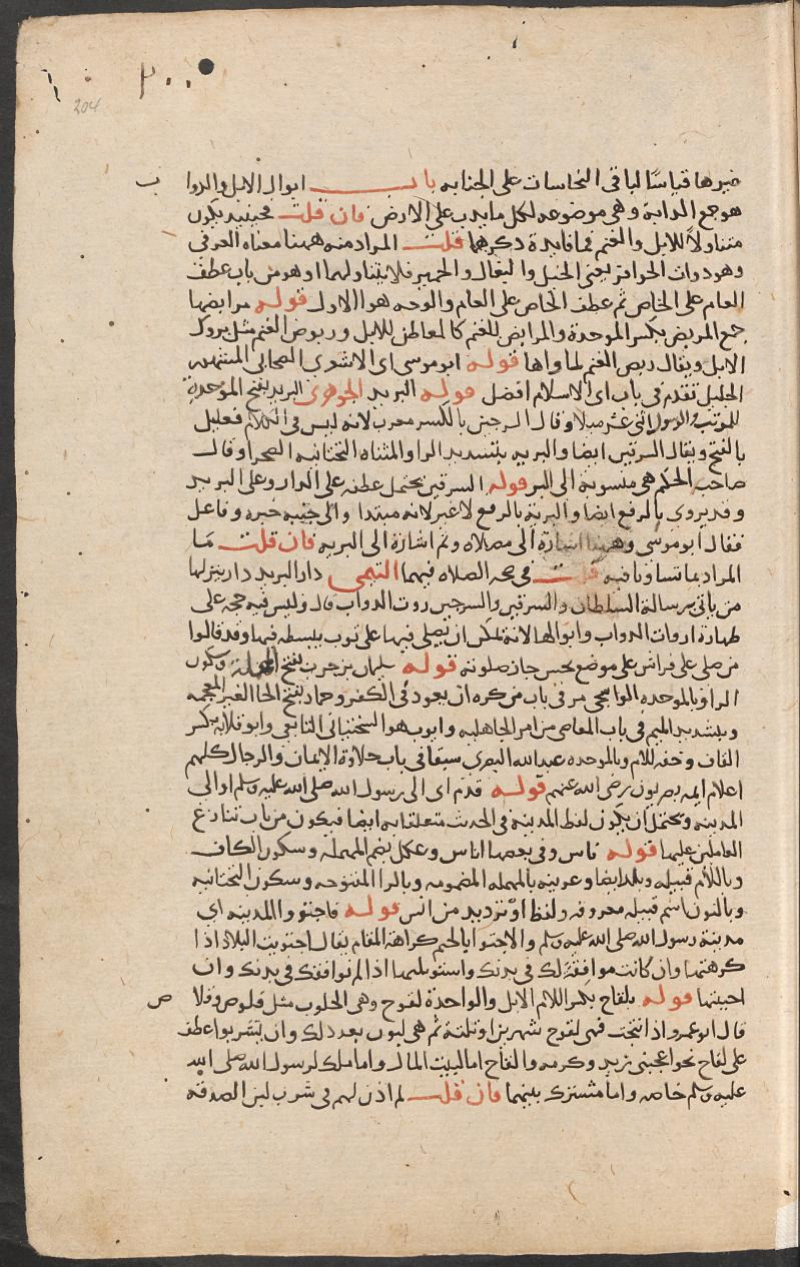 ٢٠٠
204
غيرها قياسا لباقي النجاسات على الجنابه باب ابوال الابل والدوا ب
هو جمع الدابة وهي موضوعه لكل ما يدب على الارض فان قلت فحينيد يكون
متناولا للابل والغنم فما فايدة ذكرهما قلت المراد منه ههنا معناه العرفي
وهو ذوات الحوافر يعني الخيل والبغال والحمير فلا يتناولهما او هو من باب عطف
العام على الخاص ثم عطف الخاص على العام والوجه هو الاول قوله مرابضها
جمع المربض بكسر الموحدة والمرابض للغنم كالمعاطن للابل وربوض الغنم مثل بروك
الابل ويقال ربض الغنم لماواها قوله ابو موسى اي الاشعري الصحابي المشهور
الجليل تقدم في باب اي الاسلام افضل قوله البريد الجوهري البريد بفتح الموحدة
المرتب والرسول اثني عشر ميلا وقال السرجين بالكسر معرب لانه ليس في الكلام فعليل
بالفتح ويقال السرقين ايضا والبريه بتشديد الرا والمثناه التحتانيه الصحرا وقال
صاحب المحكم هي منسوبة الى البر قوله السرقين يحتمل عطفه على الدار وعلى البريد
وقد يروى بالرفع ايضا والبرية بالرفع لا غير لانه مبتدا والى جنبه خبره وفاعل
فقال ابو موسى وههنا اشارة الى مصلاه وثم اشارة الى البريه فان قلت ما
المراد بما تساويا فيه قلت في صحة الصلاه فيهما التيمي دار البريد دار ينزلها
من ياتي برسالة السلطان والسرقين والسرجين روث الدواب قال وليس فيه حجه على
طهارة ارواث الدواب وابوالها لانه يمكن ان يصلي فيها على ثوب يبسطه فيها وقد قالوا
من صلى على فراش على موضع نجس جاز صلوته قوله سليمان بن حرب بفتح المهملة وسكون
الرا وبالموحده الواشحي مر في باب من كره ان يعود في الكفر وحماد بفتح الحا الغير المعجمه
وبتشديد الميم في باب المعاصي من امر الجاهليه وايوب هو السختياني التابعي وابو قلابه بكسر
القاف وخفه اللام وبالموحده عبد الله البصري سبقا في باب حلاوة الايمان والرجال كلهم
اعلام ايمه بصريون رضي الله عنهم قوله قدم اي الى رسول الله صلى الله عليه وسلم او الى
المدينه ويحتمل ان يكون لفظ المدينه في الحديث متعلقا به ايضا فيكون من باب تنازع
العاملين عليها قوله ناس وفي بعضها اناس وعكل بضم المهمله وسكون الكاف
وباللام قبيله وبلد ايضا وعرينه بالمهمله المضمومه وبالرا المفتوحه وسكون التحتانيه
وبالنون اسم قبيله معروفه ولفظ او ترديد من انس قوله فاجتووا المدينه اي
مدينة رسول الله صلى الله عليه وسلم والاجتوا بالجيم كراهة المقام يقال اجتويت البلاد اذا
كرهتها وان كانت موافقة لك في بدنك واستوبلتها اذا لم توافقك في بدنك وان
احببتها قوله بلقاح بكسر اللام الابل والواحدة لقوح وهي الحلوب مثل قلوص وقلا ص
قال ابو عمرو اذا نتجت فهي لقوح شهرين او ثلثة ثم هي لبون بعد ذلك وان يشربوا عطف
على لقاح نحو اعجبني زيد وكرمه واللقاح اما لبيت المال واما ملك لرسول الله صلى الله
عليه وسلم خاصه واما مشترك بينهما فان قلت لم اذن لهم في شرب لبن الصدقه